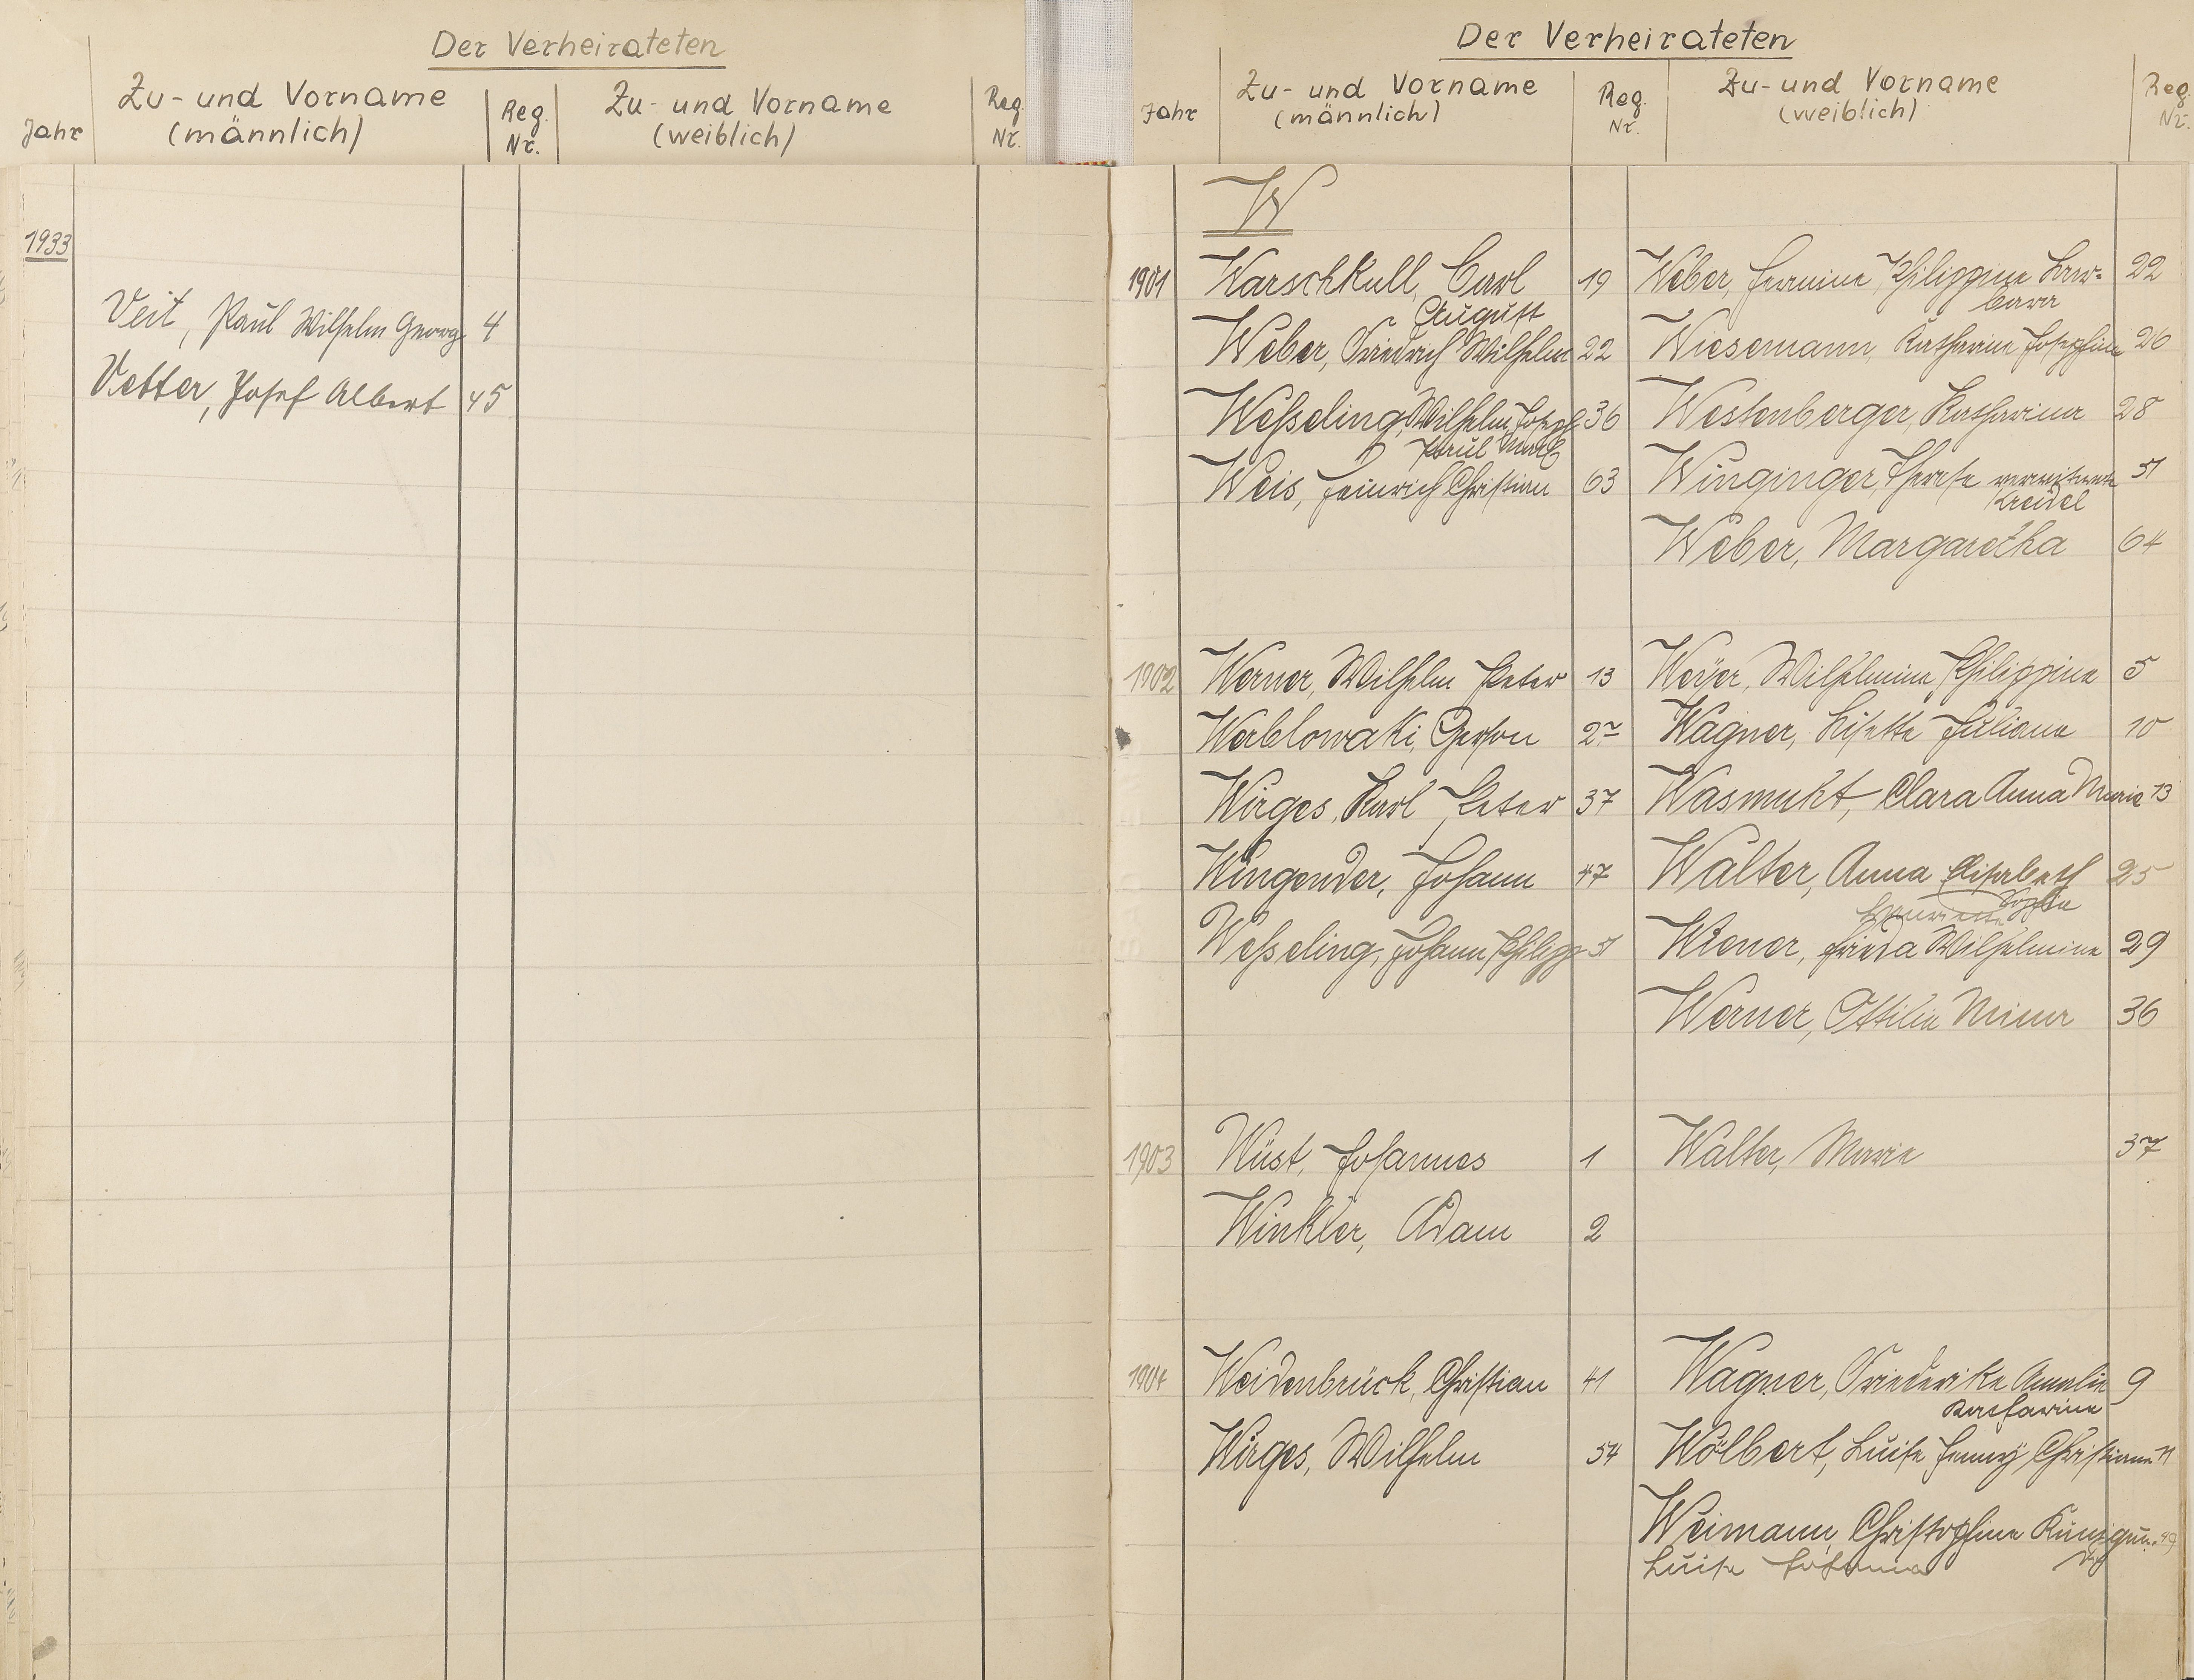 Der Verheirateten
Jahr Zu- und Vorname (männlich) Reg. Nr. Zu- und Vorname (weiblich) Reg. Nr.
1933
Veit, Paul Wilhelm Georg 4
Vetter, Josef Albert 45
Der Verheirateten
Jahr Zu- und Vorname (männlich) Reg. Nr. Zu- und Vorname (weiblich) Reg. Nr.
W
1901 Warschkull, Carl 19 Weber, Hermine Philippine Bar- 22
August bara
Weber, Friedrich Wilhelm 22 Wiesemann, Katharina Josephine 26
Weßeling, Wilhelm Joseph 36 Westenberger, Katharina 28
Paul Maria
Weis, Heinrich Christian 63 Winginger, Therese verwitwete 51
Kreidel
Weber, Margaretha 64
1902 Werner, Wilhelm Peter 13 Weyer, Wilhelmine Philippine 5
Werblowski, Gerson 27 Wagner, Lisette Juliane 10
Wirges, Karl Peter 37 Wasmuht, Clara Anna Marie 13
Wingender, Johann 47 Walter, Anna Elisabeth 25
Henriette Sophie
Weßeling, Johann Philipp 51 Wiener, Frieda Wilhelmine 29
Werner, Ottilie Minna 36
1903 Wüst, Johannes 1 Walter, Marie 37
Winkler, Adam 2
1904 Weidenbrück, Christian 41 Wagner, Friederike Amalie 9
Katharine
Wirges, Wilhelm 54 Wölbert, Luise Jenny Christiane 11
Weimann, Christophine Kunigun- 49
Luise Johanna de